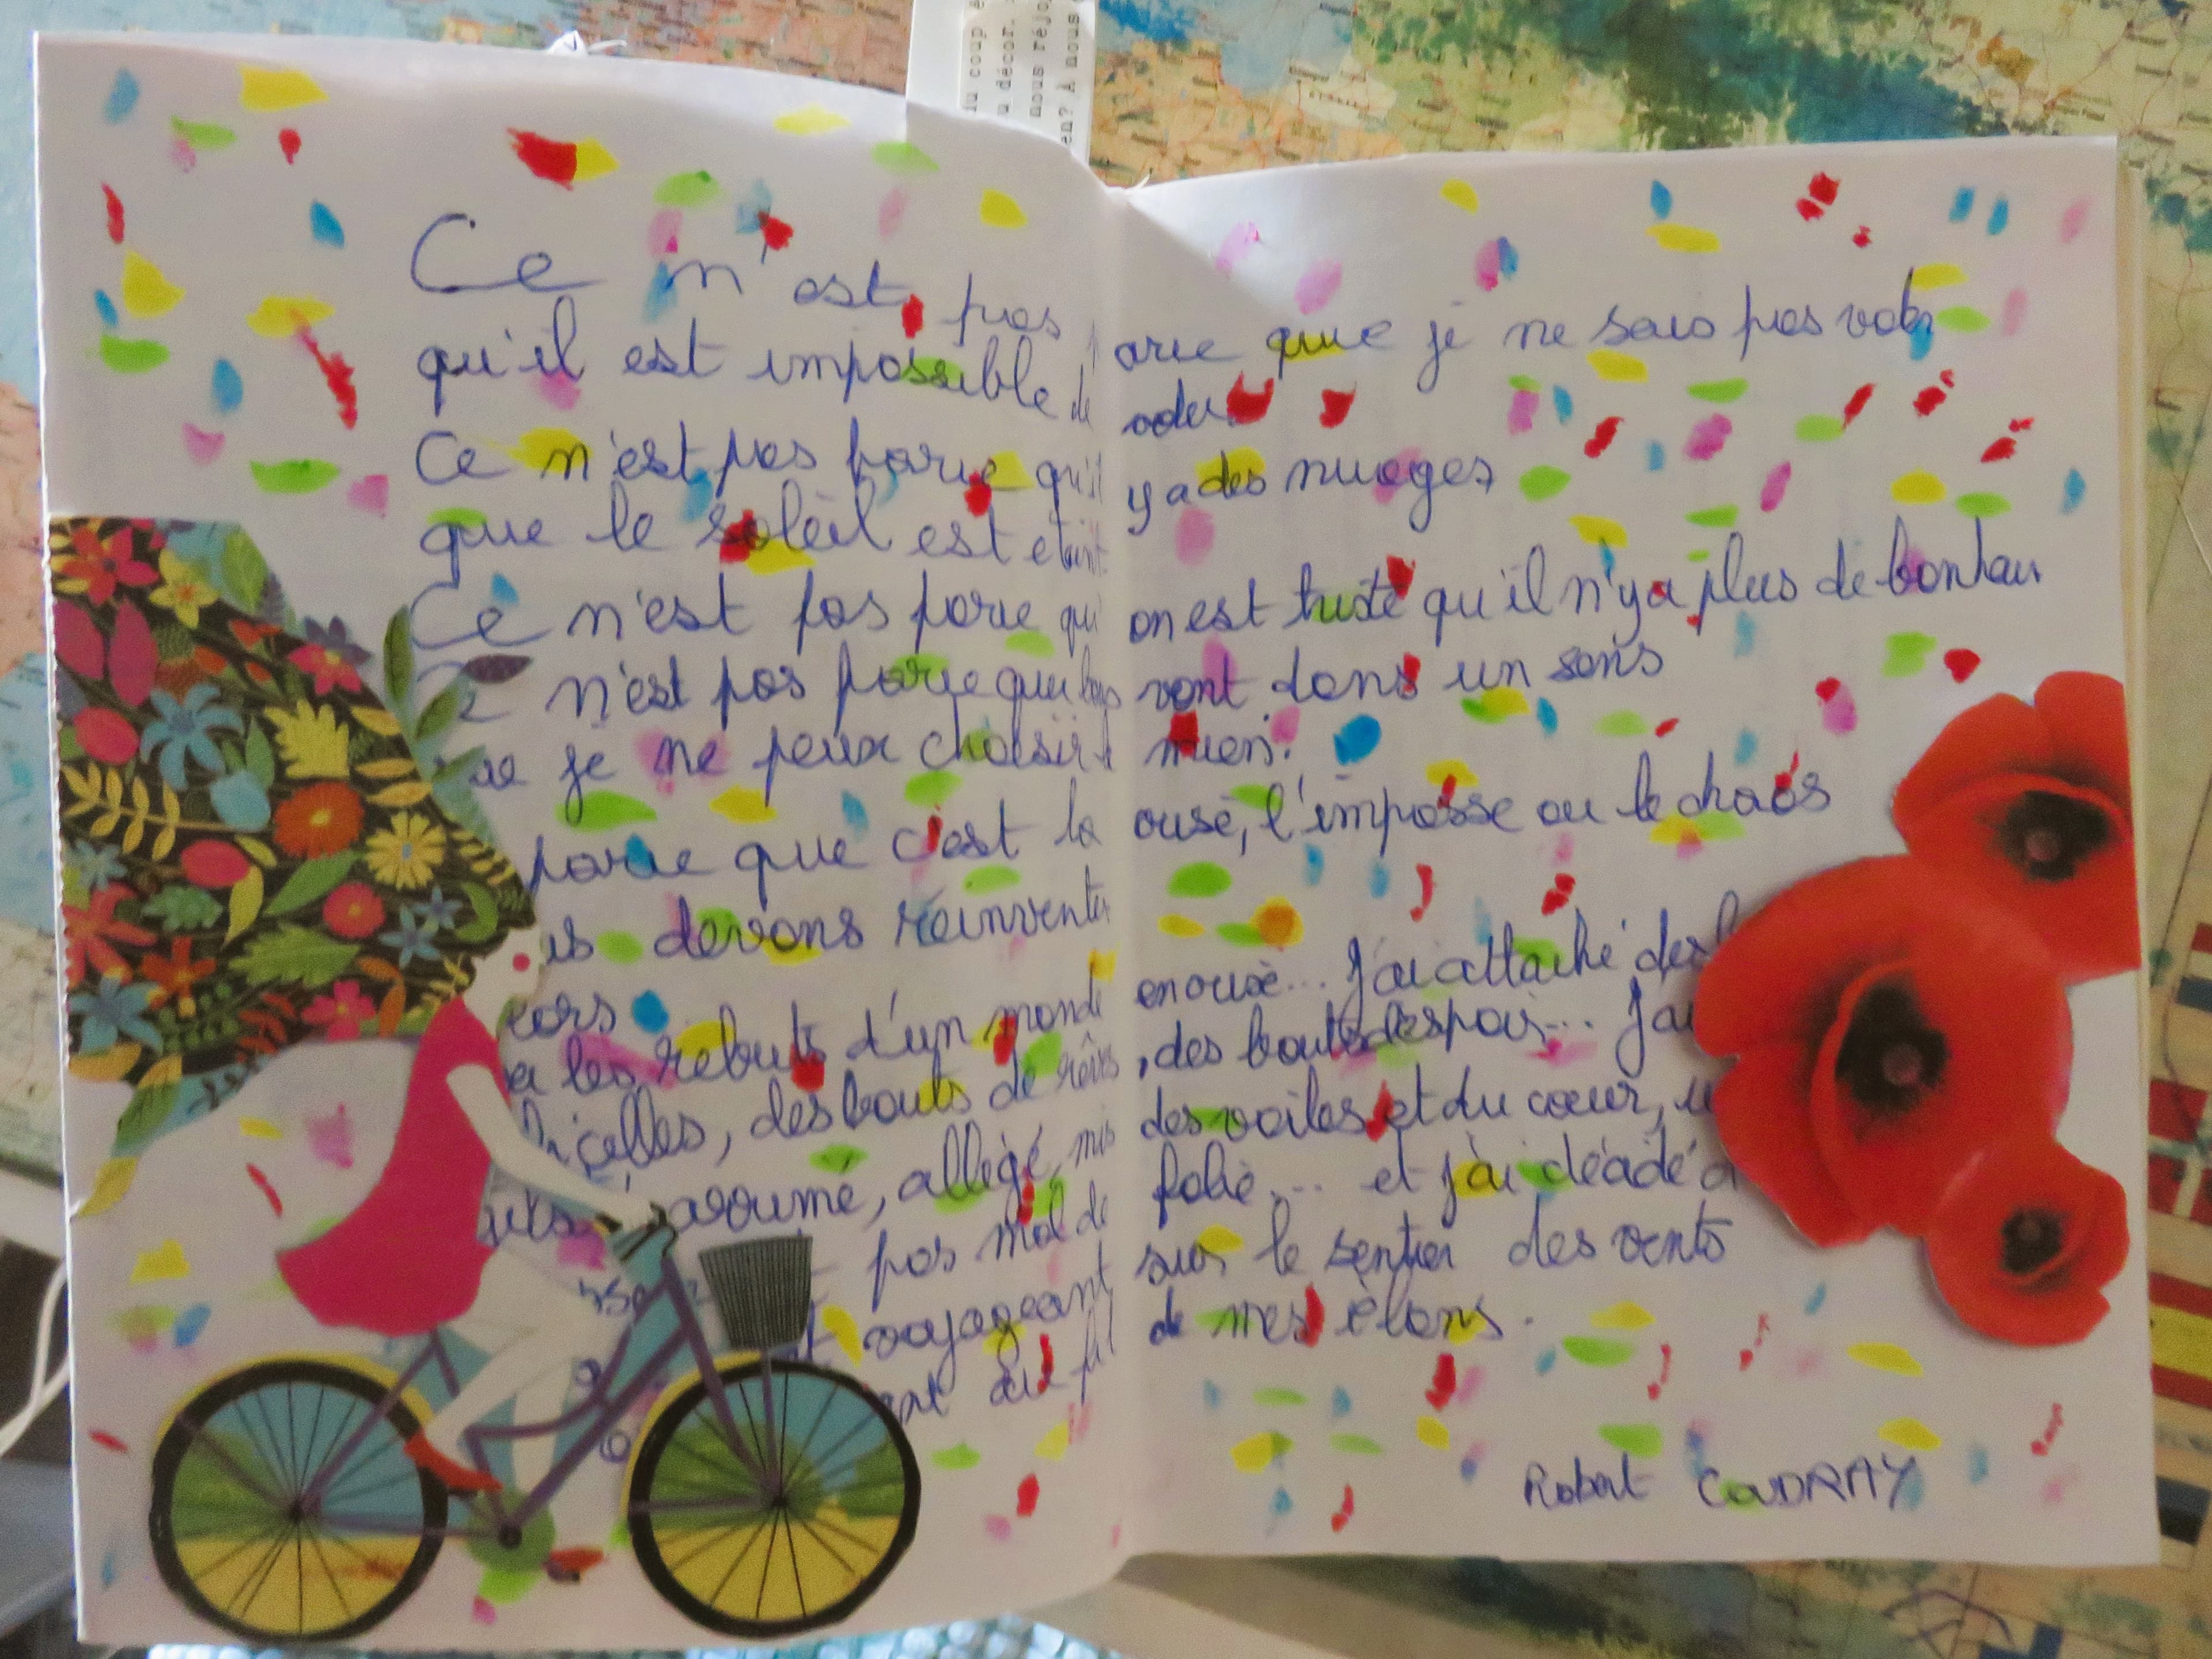 u coup
u décor.
nous réjo
en? À nous
Ce n'est pas parce que je ne sais pas voler
qu'il est impossible de voler
Ce n'est pas parce qu'il y a des nuages
que le soleil est éteint
Ce n'est pas parce qu'on est triste qu'il n'y a plus de bonheur
Ce n'est pas parce que tous vont dans un sens
que je ne peux choisir le mien.
parce que c'est la crise, l'impasse ou le chaos
us devons réinventer
cors
les rebuts d'un monde en crise... J'ai attaché des
ficelles, des bouts de rêves, des bouts d'espoir... J'ai
arrumé, allégé, mis des voiles et du cœur, u
pas mal de folie... et j'ai décidé d
t voyageant sur le sentier des vents
ant au fil de mes élans.
Robert COUDRAY